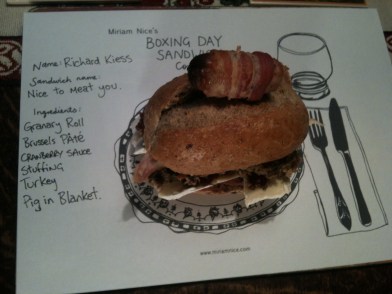 Miriam Nice's
BOXING DAY
SANDWICH
Name: Richard Kiess
Sandwich name:
Nice to meat you.
Ingredients:
Granary Roll
Brussels Pâté
CRANBERRY SAUCE
Stuffing
Turkey
Pig in Blanket.
www.miriamnice.com